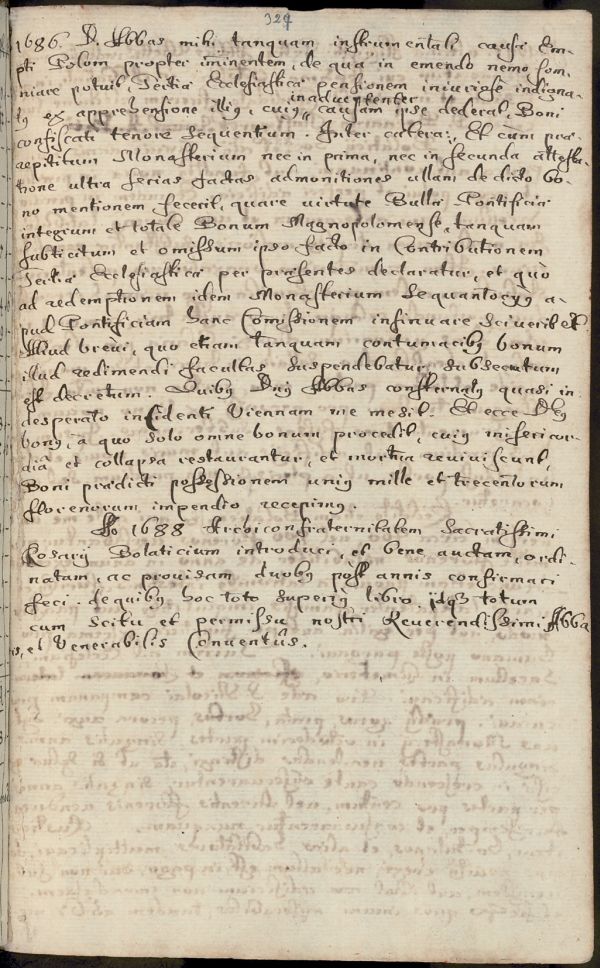 324
1686. D. Abbas mihi tanquam instrumentali causæ Em-
pti Polom propter iminentem, de qua in emendo nemo som-
niare potuit, Tertiæ Ecclesiasticæ pensionem iniuriose indigna-
tus ex apprehensione illius, cuius inaduertenter causam ipse dederat, Boni
confiscati tenore sequentium. Inter cætera: Et cum præ-
repititum Monasterium nec in prima, nec in secunda attesta-
tione ultra sæcias factas admonitiones ullam de dicto bo-
no mentionem fecerit, quare uirtute Bullæ Pontificiæ
integrum et totale Bonum Magnopolomense, tanquam
subticitum et omissum ipso facto in Contributionem
Tertiæ Ecclesiasticæ per præsentes declaratur, et quò
ad redemptionem idem Monasterium sequantocyus a-
pud Pontificiam hanc Comissionem insinuare sciuerit et
Illud breui, quo etiam tanquam contumacibus bonum
illud redimendi facultas suspendebatur, subsecutum
est decretum. Quibus Dnus Abbas consternatus quasi in
desperato insidenti Viennam me misit. Et ecce Deus
bonus, a quo solo omne bonum procedit, cuius misericor-
dia et collapsa restaurantur, et mortua reuiuiscunt,
Boni prædicti possessionem unius mille et trecentorum
florenorum impendio recepimus.
Ao 1688 Archiconfraternitatem Sacratissimi
Rosarij Bolaticium introduci, et bene auctam, ordi-
natam, ac prouisam duobus post annis confirmari
feci. de quibus hoc toto superius libro, idque totum
cum scitu et permissu nostri Reuerendissimi Abba
is, et Venerabilis Conventûs.